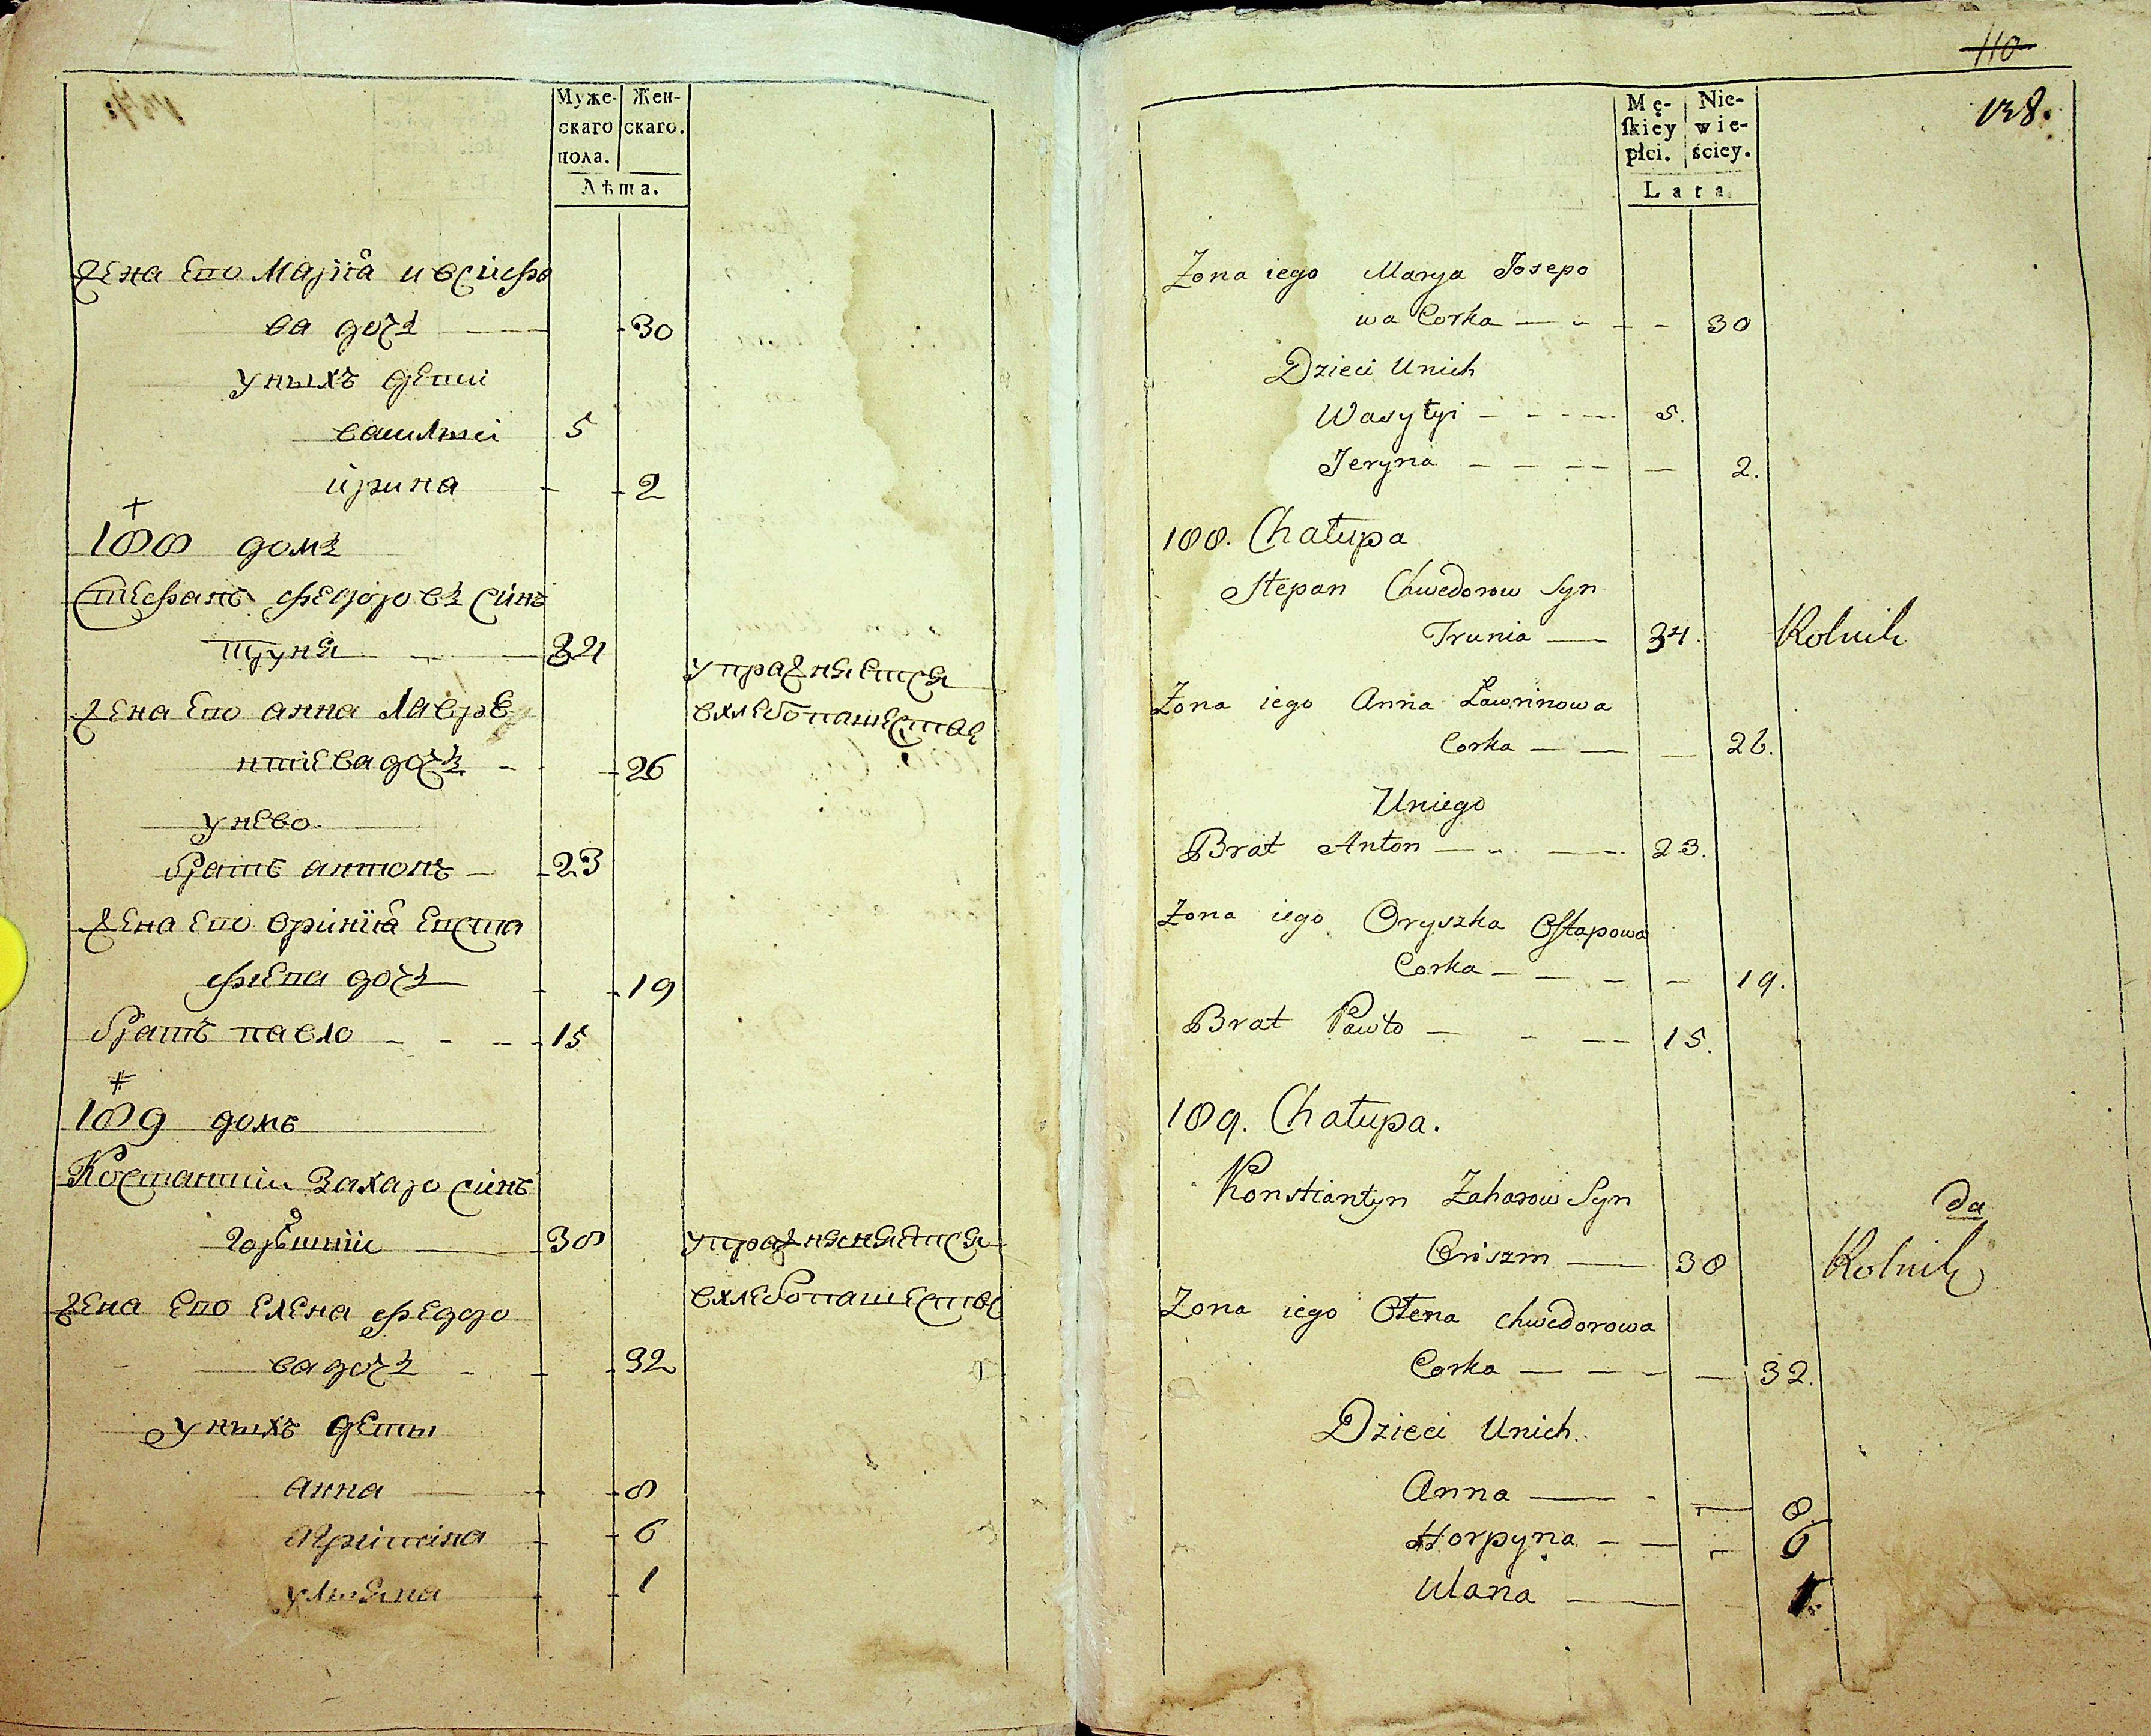 Муже-
скаго
пола.
Жен-
скаго.
Лѣта.
жена его Мариа иосифо
ва дочъ 30
уныхъ дети
василий 5
ирина 2
188 домъ
Стефанъ федоровъ синъ
труня 34
упражняется
вхлебопашестве
жена его анна Лавре
нтиева дочъ 26
унево
братъ антонъ 23
жена его ориния евста
фиева дочъ 19
братъ павло 15
189 домъ
Костантии Захаро синъ
38
вхлебопашестве
жена его елена федоро
ва дочъ 32
уныхъ деты
анна 8
агрипина 6
улияна 1
110
138.
Mę-
skiey
płci.
Nie-
wie-
ściey.
Lata
Zona iego Marya Josepo
wa Corka 30
Dzieci Unich
Wasylyi 5.
Jeryna 2.
188. Chałupa
Stepan Chwedorow Syn
Trunia 34. Rolnik
Zona iego Anna Ławrinowa
Corka 26.
Uniego
Brat Anton 23.
Zona iego Oryszka Ostapowa
Corka 19.
Brat Pawło 15.
189. Chałupa.
Konstiantyn Zaharow Syn
da
Oriszm 38 Rolnik
Zona iego Ołena Chwedorowa
Corka 32.
Dzieci Unich.
Anna 8.
Horpyna 6
Ulana 1.